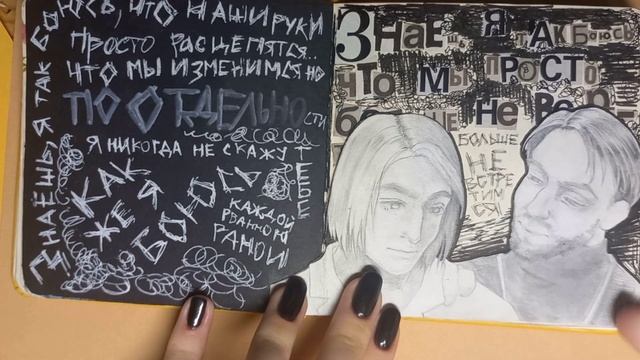 Знаешь, я так боюсь, что наши руки
просто расцепятся...
что мы изменимся но
по отдельности
я никогда не скажу тебе
как
же я
боюсь
каждой
рванной
раной
Знаешь, я так боюсь
что мы просто
больше не
больше
не
встре
тим
ся!